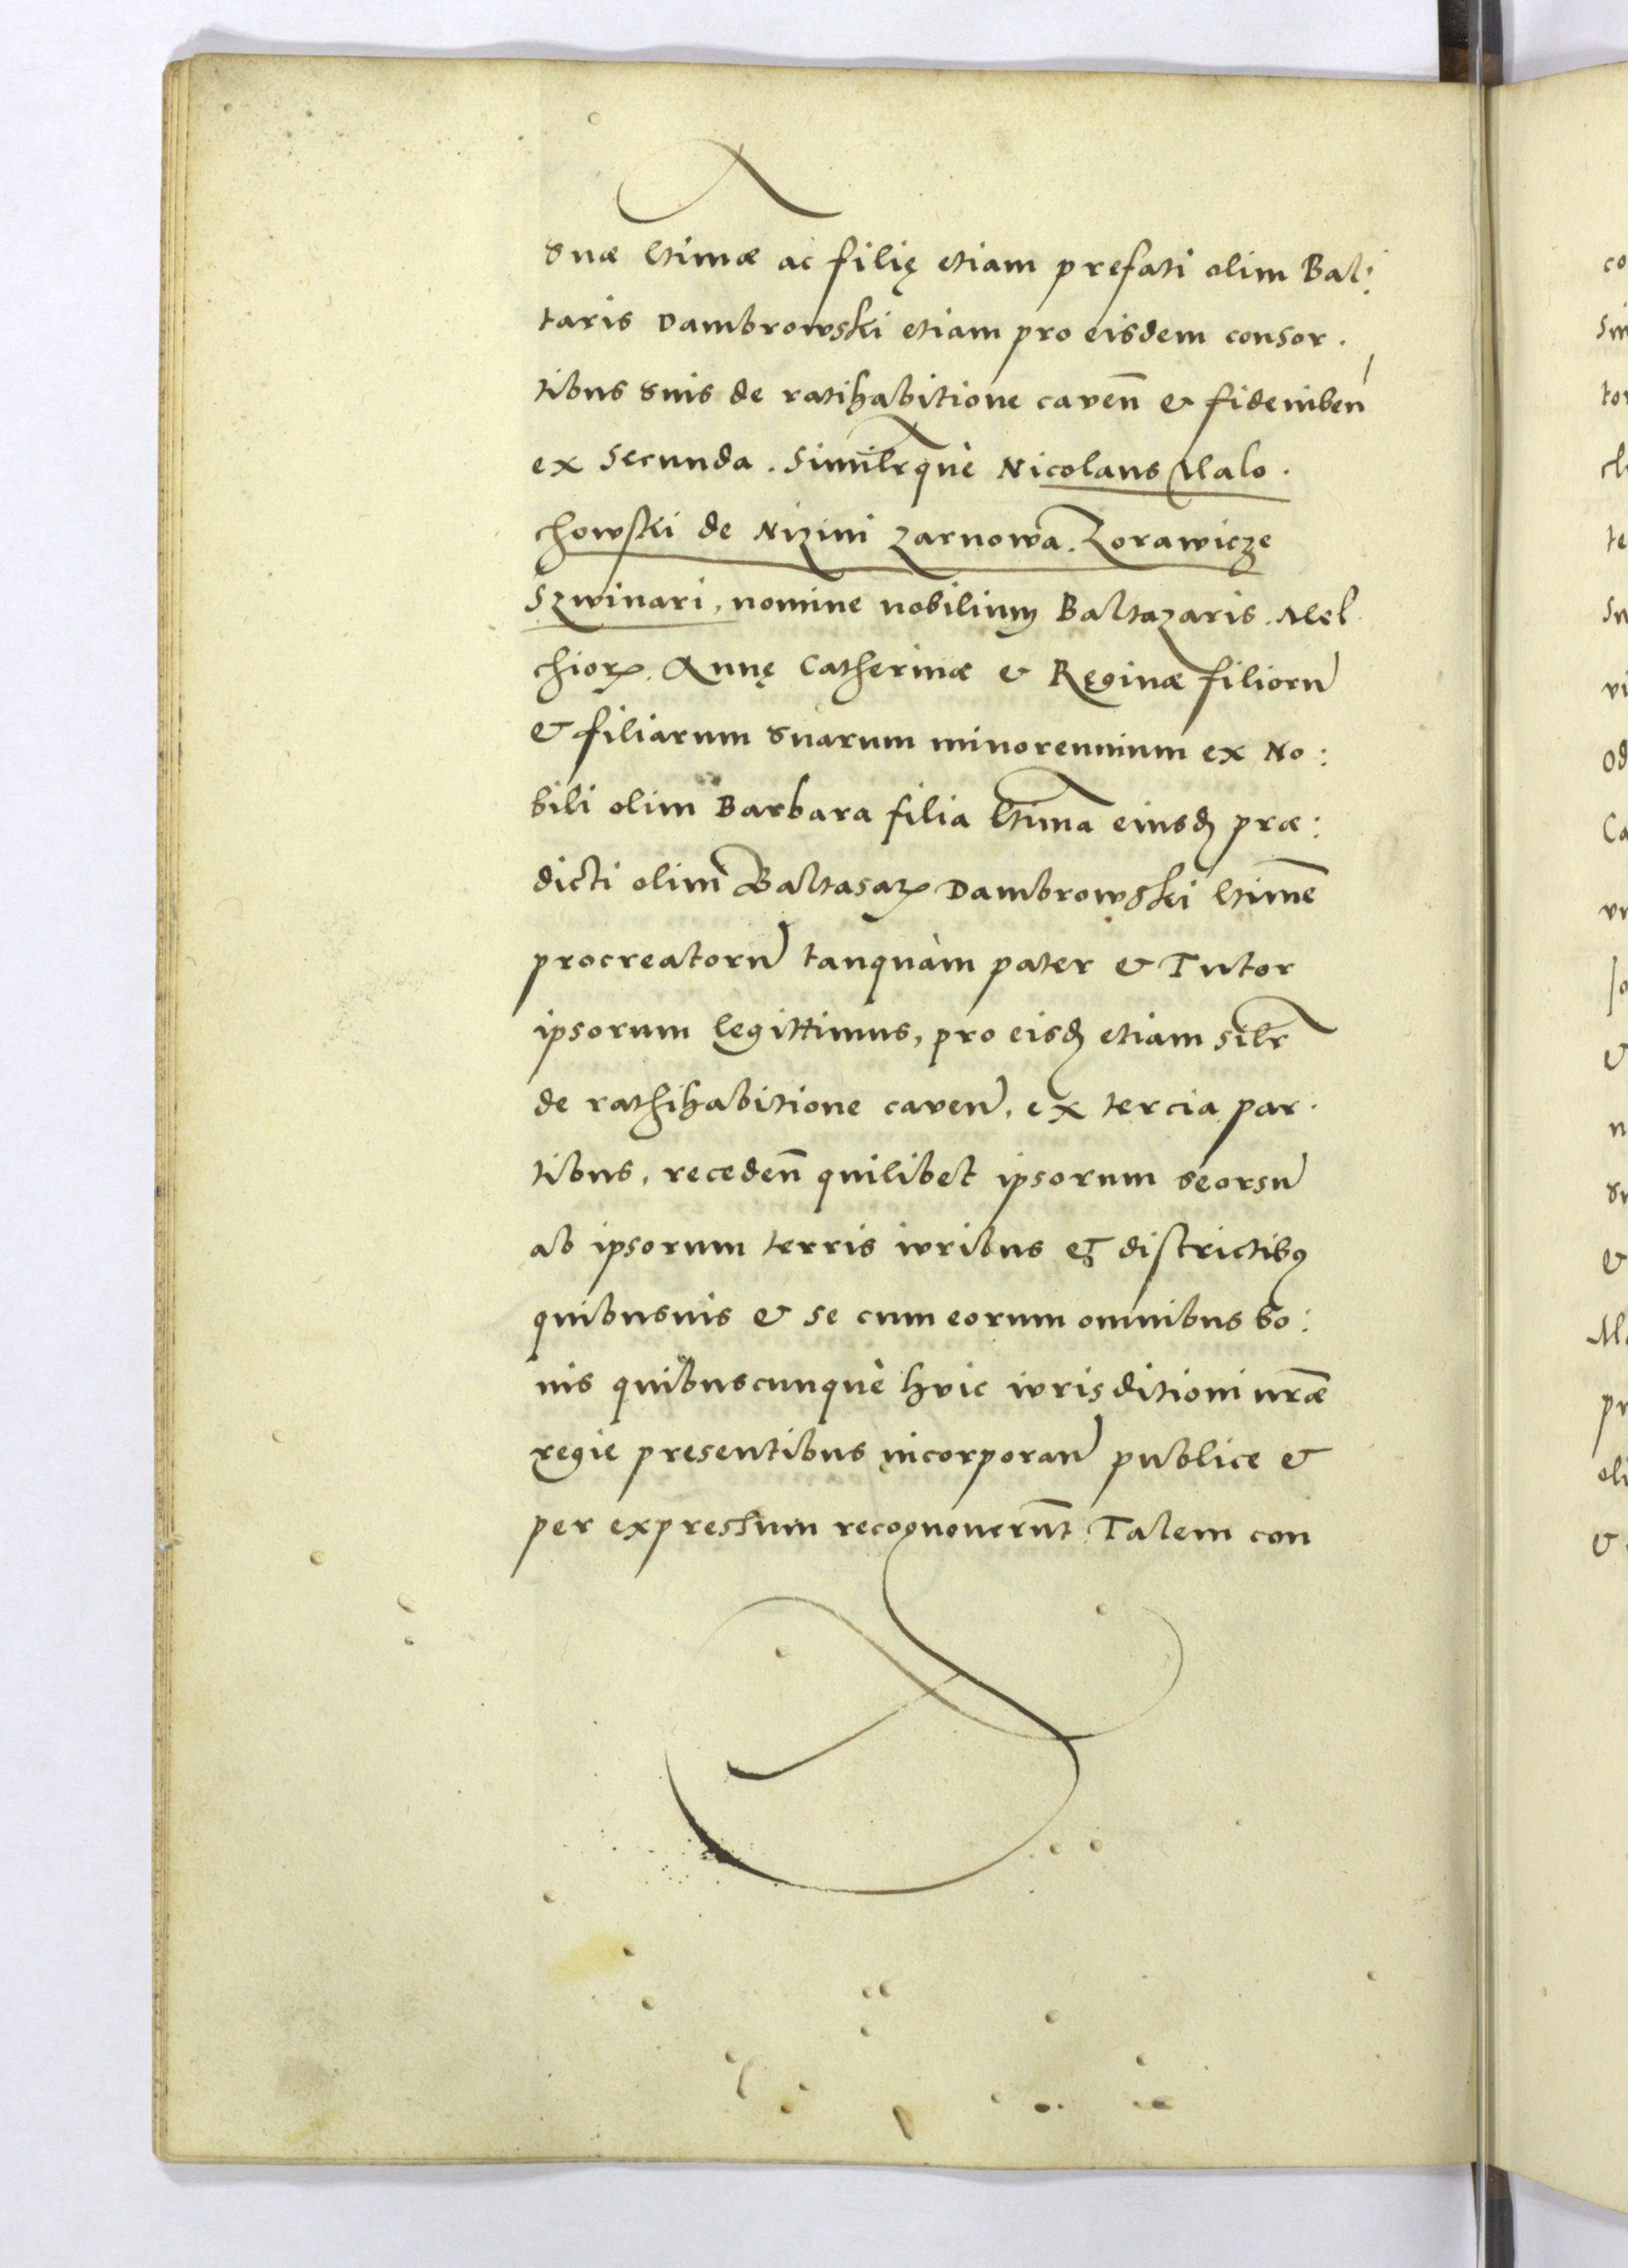 suæ ltimæ ac filię etiam prefati olim Bal:
taris Dambrowski etiam pro eisdem consor.
tibus suis de ratihabitione caven̄ & fideiuben̄
ex secunda. similrque Nicolaus Malo.
chowski de Nizini Zarnowa. Zorawicze
Szwinari, nomine nobilium Baltazaris. Mel
chioꝝ. Annę Catherinæ & Reginæ filiorū
& filiarum suarum minorennium ex No:
bili olim Barbara filia ltima eiusđ præ:
dicti olim Baltasaꝝ Dambrowski ltime
procreatorū tanquàm pater & Tutor
ipsorum legittimus, pro eisđ etiam silr
de rathihabitione caven̄, ex tercia par.
tibus, receden̄ quilibet ipsorum seorsū
ab ipsorum terris iuribus & districtibꝯ
quibusuis & se cum eorum omnibus bo:
nis quibuscunquè huic iurisditioni nr̄æ
regie presentibus incorporan̄ publice &
per expressum recognouerūt Talem con